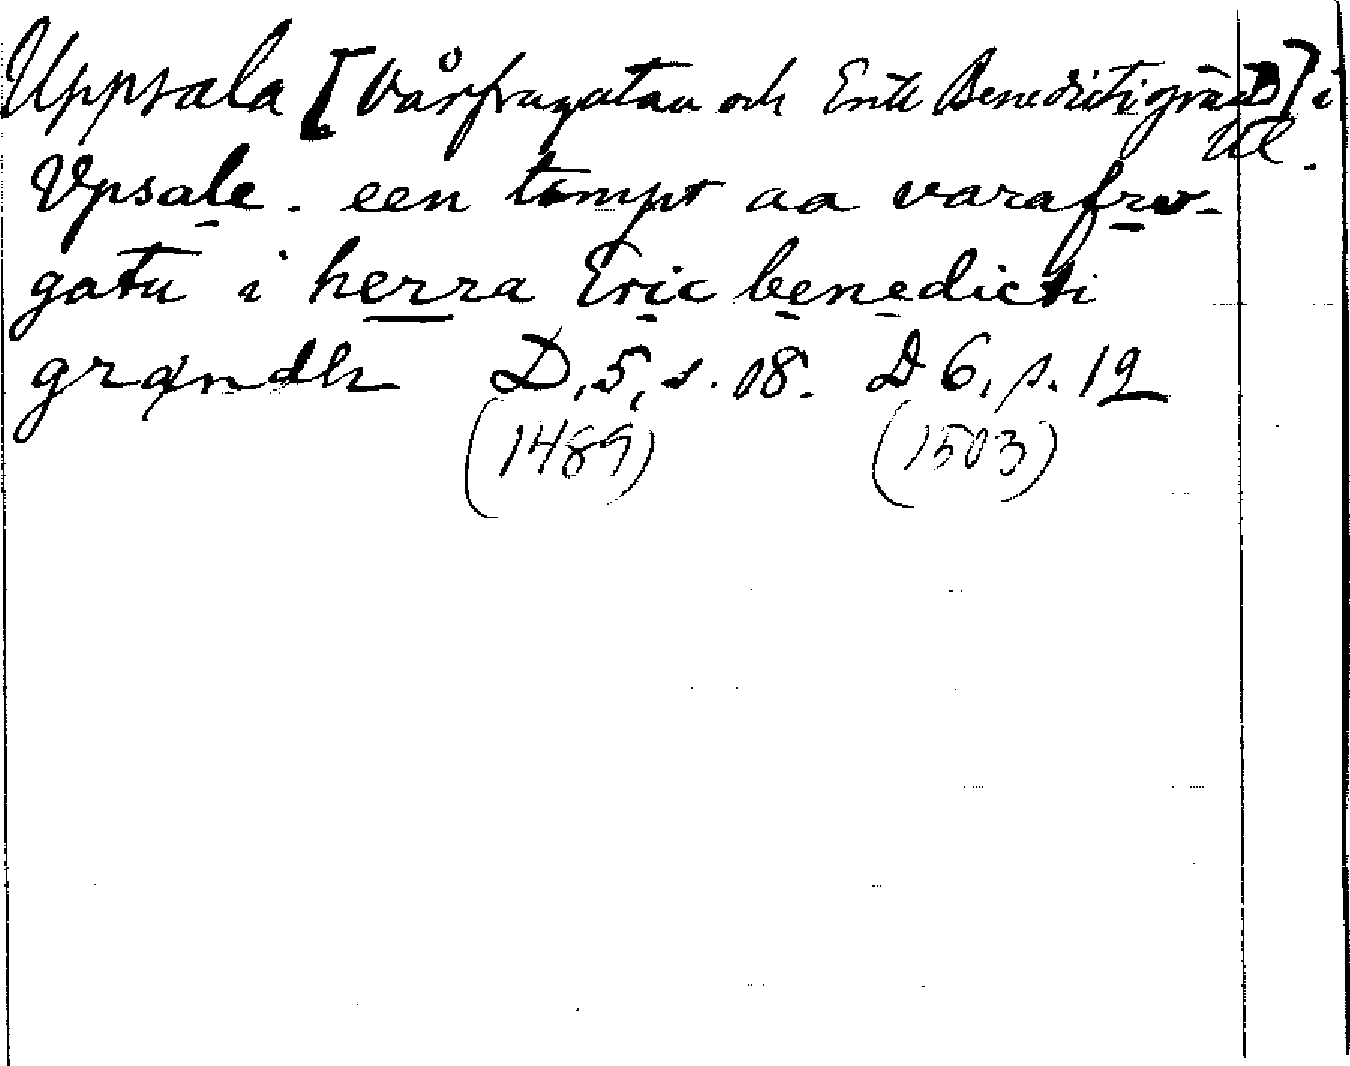 Uppsala [Vårfrugatan och Erik Benedicti gränd] i
Ul.
Vpsale. een tompt aa varafrw-
gatu i herra Eric benedicti
grændh D, 5, s. 08. D 6, s. 12
(1489) (1503)